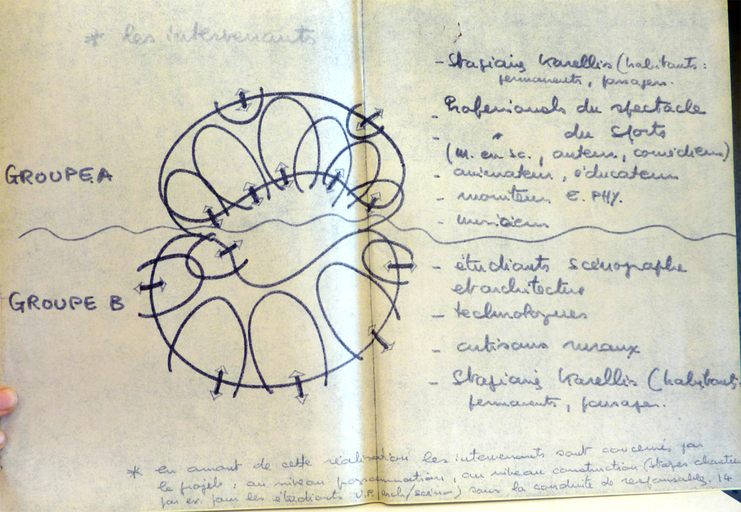 * les intervenants
- Stagiaires Karellis (habitants :
permanents, passagers.
- Professionnels du spectacle
- " du sports
(m. en sc., auteurs, comédiens)
GROUPE A
- animateurs, éducateurs
- moniteurs E. PHY.
- musiciens
- étudiants scénographe
et architecture
GROUPE B
- technologues
- artisans ruraux
- Stagiaires Karellis (habitants
permanents, passagers.
* en amont de cette réalisation les intervenants sont concernés par
le projet, au niveau programmation, au niveau construction (stages chantier
par ex. pour les étudiants U.P. /scéno) sous la conduite de responsables. 14